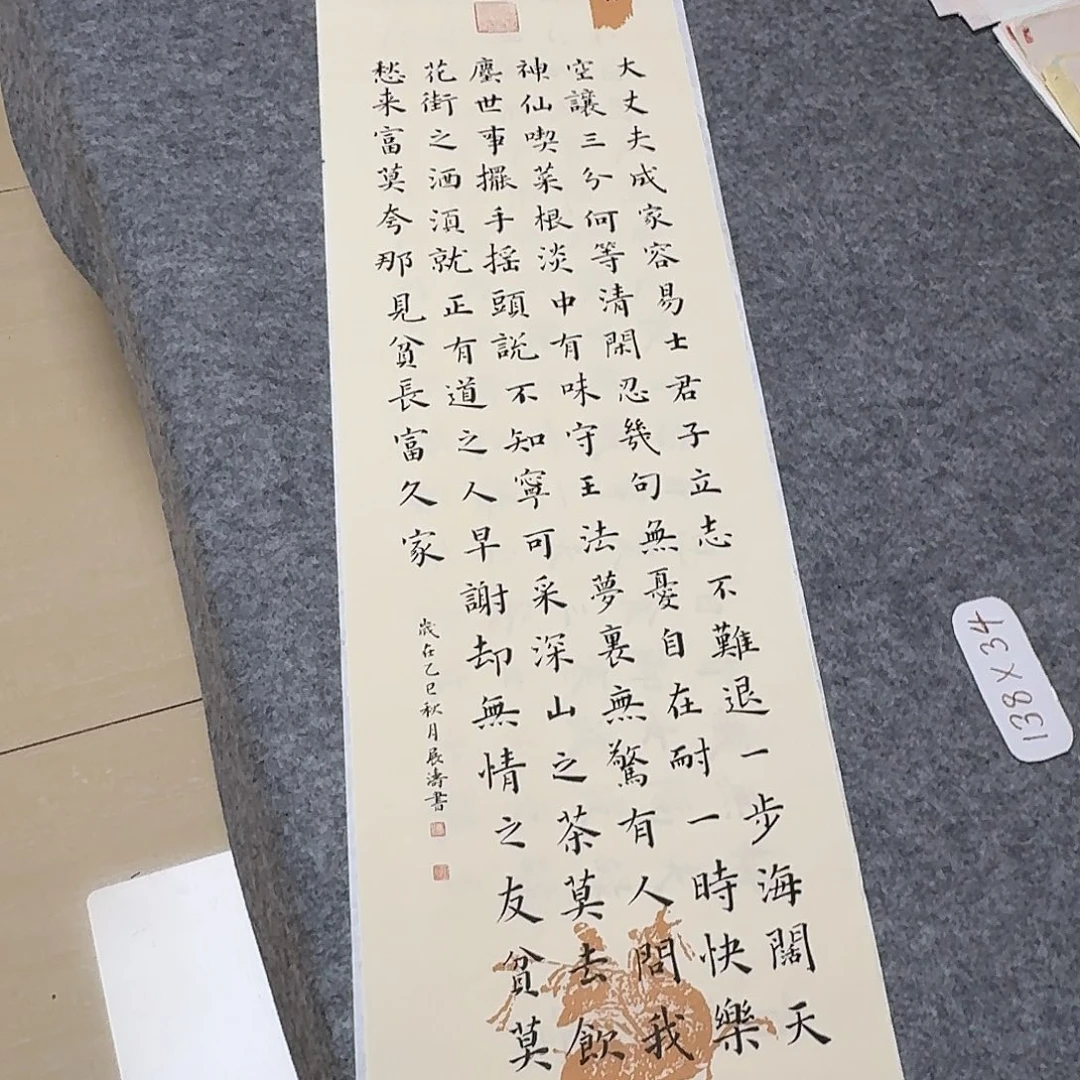 大丈夫成家容易士君子立志不難退一步海闊天
空讓三分何等清閑忍幾句無憂自在耐一時快樂
神仙喫菜根淡中有味守王法夢裏無驚有人問我
塵世事擺手摇頭説不知寧可采深山之茶莫去飲
花街之酒須就正有道之人早謝却無情之友貧莫
愁来富莫夸那見貧長富久家
歲在乙巳秋月展濤書
138 X 34